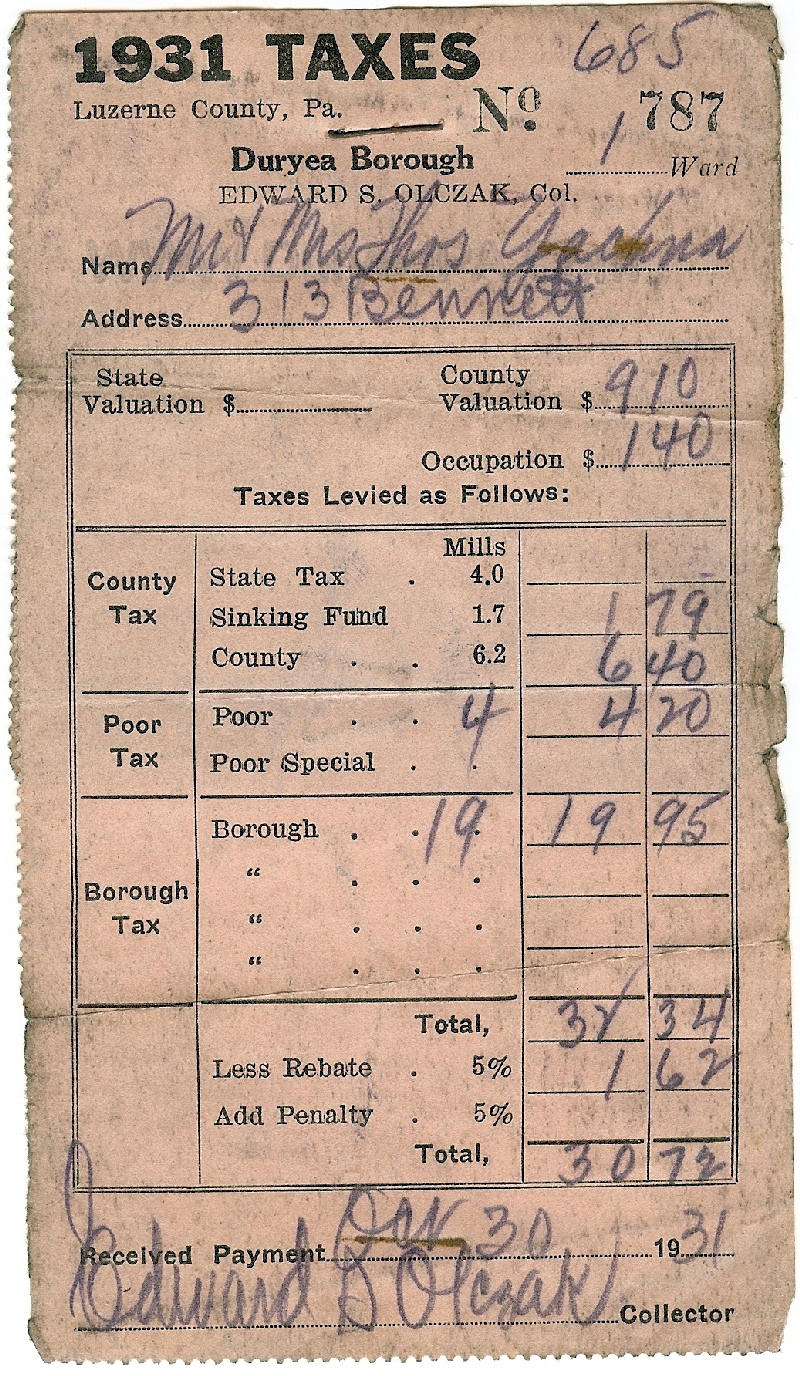 1931 TAXES 685
Luzerne County, Pa. Nº. 787
Duryea Borough 1 Ward
EDWARD S. OLCZAK, Col.
Name Mr & Mrs Thos Yachna
Address 313 Bennett
State Valuation $ County Valuation $ 910
Occupation $ 140
Taxes Levied as Follows:
Mills
County Tax
State Tax . 4.0
Sinking Fund 1.7 1 79
County . . 6.2 6 40
Poor Tax
Poor . . 4 4 20
Poor Special . .
Borough Tax
Borough . . 19 . 19 95
“ . . .
“ . . .
“ . . .
Total, 32 34
Less Rebate . 5% 1 62
Add Penalty . 5%
Total, 30 72
Received Payment Oct 30 1931
Edward S Olczak Collector